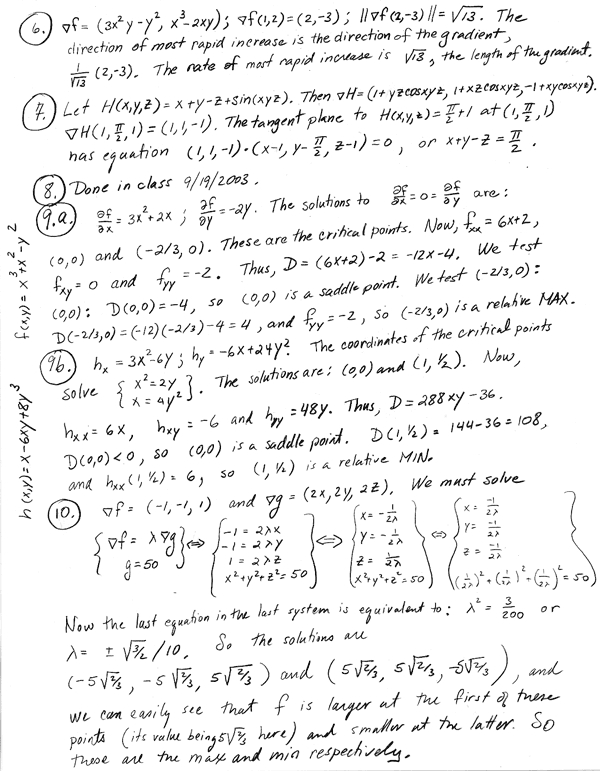 6. ∇f = (3x²y − y², x³ − 2xy); ∇f(1,2) = (2,−3); ‖∇f(2,−3)‖ = √13. The
direction of most rapid increase is the direction of the gradient,
1/√13 (2,−3). The rate of most rapid increase is √13, the length of the gradient.
7. Let H(x,y,z) = x+y−z+sin(xyz). Then ∇H = (1+yz cosxyz, 1+xz cosxyz, −1+xy cosxyz).
∇H(1, π/2, 1) = (1,1,−1). The tangent plane to H(x,y,z) = π/2 + 1 at (1, π/2, 1)
has equation (1,1,−1)·(x−1, y−π/2, z−1) = 0, or x+y−z = π/2.
8. Done in class 9/19/2003.
9.a. ∂f/∂x = 3x²+2x; ∂f/∂y = −2y. The solutions to ∂f/∂x = 0 = ∂f/∂y are:
(0,0) and (−2/3, 0). These are the critical points. Now, fxx = 6x+2,
fxy = 0 and fyy = −2. Thus, D = (6x+2)−2 = −12x−4. We test
(0,0): D(0,0) = −4, so (0,0) is a saddle point. We test (−2/3,0):
D(−2/3,0) = (−12)(−2/3)−4 = 4, and fyy = −2, so (−2/3,0) is a relative MAX.
f(x,y) = x³+x²−y²
9b. hx = 3x²−6y; hy = −6x+24y². The coordinates of the critical points
solve { x²=2y
x=4y² }. The solutions are: (0,0) and (1, ½). Now,
hxx = 6x, hxy = −6 and hyy = 48y. Thus, D = 288xy−36.
D(0,0) < 0, so (0,0) is a saddle point. D(1,½) = 144−36 = 108,
and hxx(1,½) = 6, so (1,½) is a relative MIN.
h(x,y) = x−6xy+8y³
10. ∇f = (−1,−1,1) and ∇g = (2x,2y,2z). We must solve
{ ∇f = λ∇g
g=50 } ⇔ { −1 = 2λx
−1 = 2λy
1 = 2λz
x²+y²+z² = 50 } ⇔ { x = −1/2λ
y = −1/2λ
z = 1/2λ
x²+y²+z² = 50 } ⇔ { x = −1/2λ
y = −1/2λ
z = −1/2λ
(1/2λ)²+(1/2λ)²+(1/2λ)² = 50 }
Now the last equation in the last system is equivalent to: λ² = 3/200 or
λ = ± √3/2 /10. So the solutions are
(−5√2/3, −5√2/3, 5√2/3) and (5√2/3, 5√2/3, −5√2/3), and
we can easily see that f is larger at the first of these
points (its value being 5√2/3 here) and smaller at the latter. So
these are the max and min respectively.